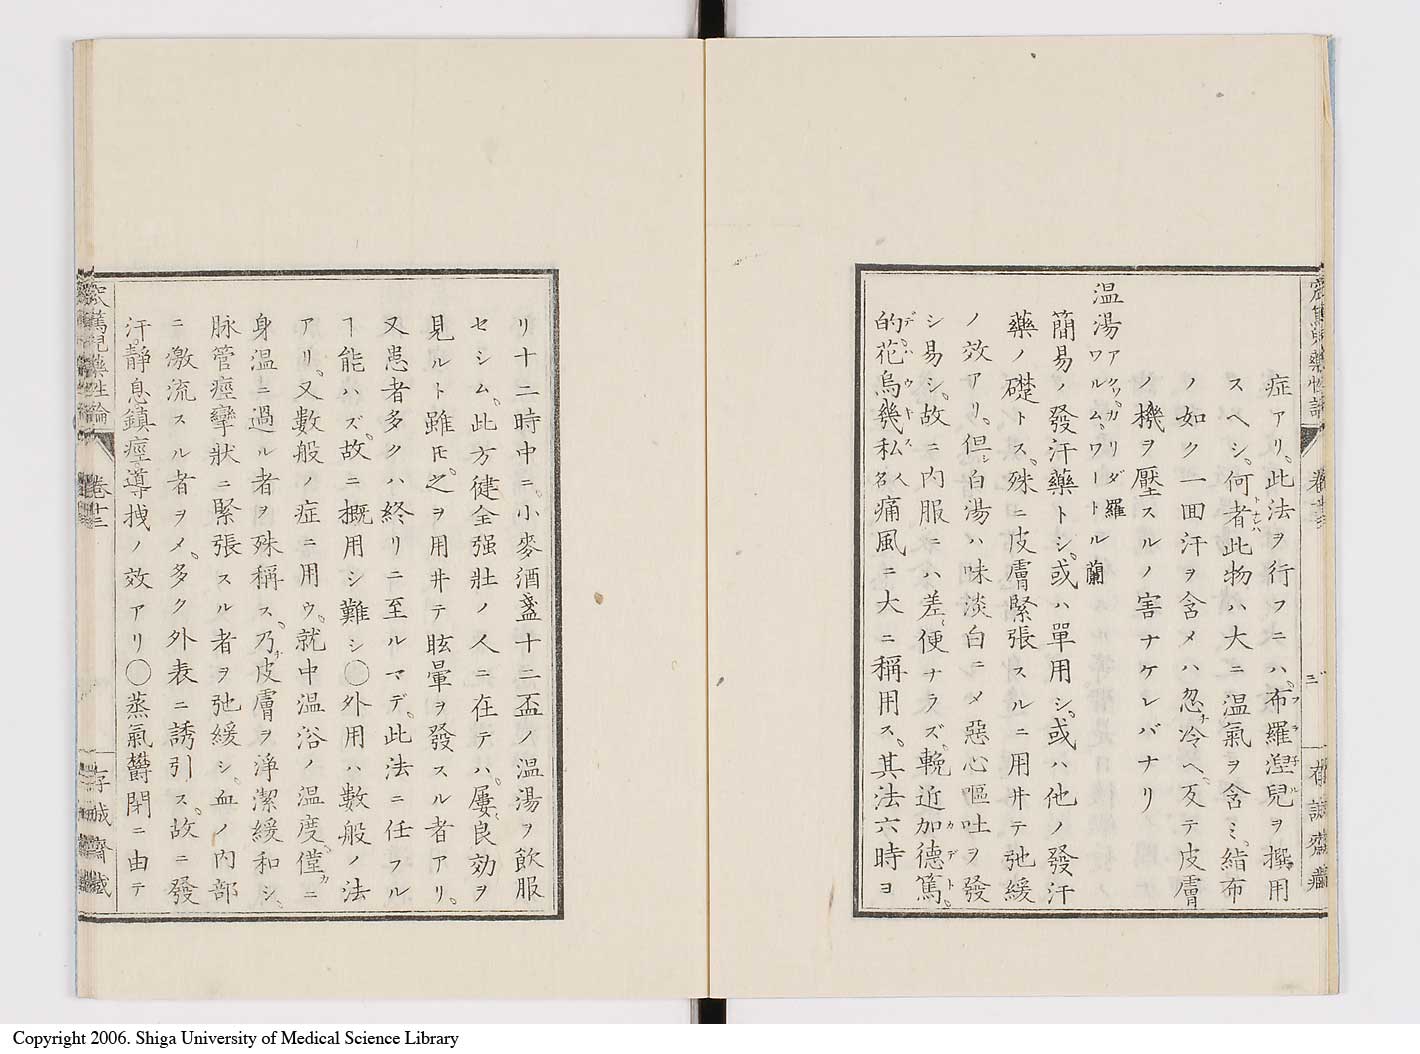 症アリ。此法ヲ行フニハ。布羅涅兒ヲ撰用
スヘシ。何者此物ハ大ニ温氣ヲ含ミ。絹布
ノ如ク一囬汗ヲ含メハ忽冷ヘ。反テ皮膚
ノ機ヲ壓スルノ害ナケレバナリ
温湯アクワ。ガリダ羅
ワルム。ワートル蘭
簡易ノ發汗藥トシ。或ハ單用シ。或ハ他ノ發汗
藥ノ礎トス。殊ニ皮膚緊張スルニ用井テ弛緩
ノ效アリ。但シ白湯ハ味淡白ニメ惡心嘔吐ヲ發
シ易シ。故ニ內服ニハ差便ナラズ。輓近加德篤。
的花烏幾私人名痛風ニ大ニ稱用ス。其法六時ヨ
リ十二時中ニ。小麥酒盞十二盃ノ温湯ヲ飲服
セシム。此方健全强壯ノ人ニ在テハ。屢良効ヲ
見ルト雖𪜈。之ヲ用井テ眩暈ヲ發スル者アリ。
又患者多クハ終リニ至ルマデ。此法ニ任フル
ヿ能ハズ。故ニ概用シ難シ〇外用ハ數般ノ法
アリ。又數般ノ症ニ用ウ。就中温浴ノ温度僅ニ
身温ニ過ル者ヲ殊稱ス。乃皮膚ヲ淨潔緩和シ。
脉管痙攣狀ニ緊張スル者ヲ弛緩シ。血ノ內部
ニ激流スル者ヲメ。多ク外表ニ誘引ス。故ニ發
汗。靜息鎮痙導拽ノ效アリ〇蒸氣欝閉ニ由テ
篤兒藥性論 卷十三 存誠齋藏